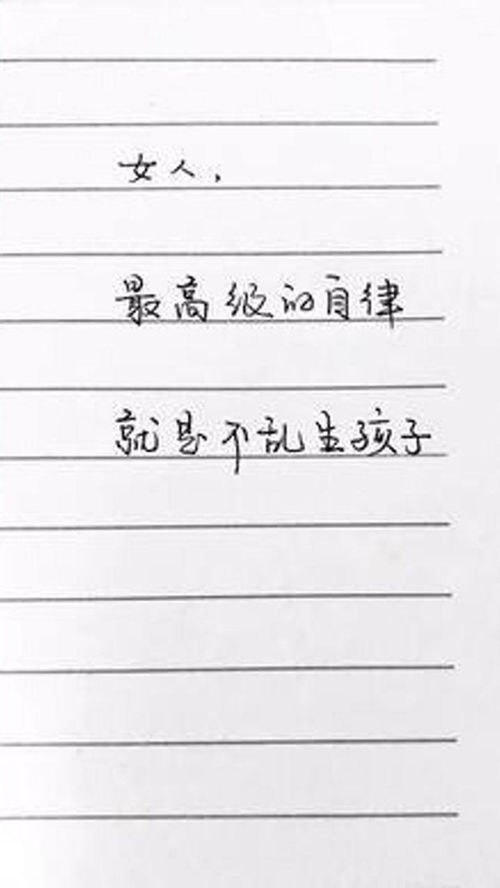 女人，
最高级的自律
就是不乱生孩子